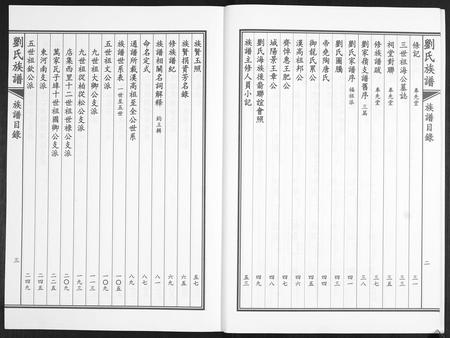 劉氏族譜
族譜目錄
二
條記 奉先堂 三一
三世祖海公墓誌 三二
祠堂對聯 奉先堂
修族譜跋 奉先堂
劉家摺支譜舊序 三篇 三八
劉氏家譜序 福祖派
劉氏圖騰
帝堯陶唐氏
御龍氏累公
漢高祖邦公
齊悼惠王肥公
城陽景王章公
劉氏海族後裔聯誼會照 四九
族譜主修人員小記 五三
族賢玉照 五七
族賢撰資芳名錄 六五
修族譜紀 六九
族譜相關名詞解釋 鈞三輯 八一
命名定式 八七
通譜所載漢高祖至全公世系 八九
族譜世系表 一世至五世 一〇五
五世祖文公派 一〇九
九世祖大卿公支派 一一三
九世祖從柏從松公支派 一九三
店集西里十二世祖世棟公支派 二〇九
萬家瓦子埠十世祖國卿公支派 二二五
東河南支 二四五
五世祖欽公派 二四九
劉氏族譜
族譜目錄
三